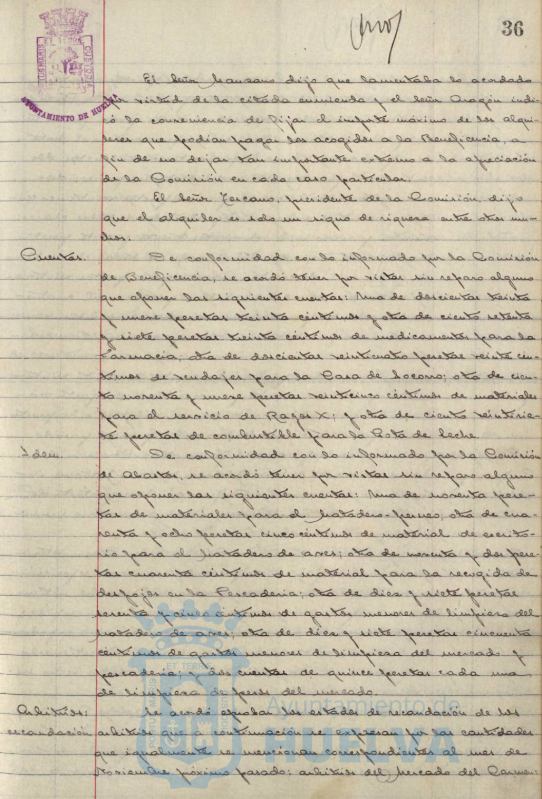 36
AYUNTAMIENTO DE HUELVA
El Señor Manzano dijo que lamentaba lo acordado
por virtud de la citada enmienda y el Señor Aragón indi-
có la conveniencia de fijar el importe máximo de los alqui-
leres que podian pagar los acogidos a la Beneficencia, a
fin de no dejar tan importante extremo a la apreciación
de la Comisión en cada caso particular.
El Señor Terrano, presidente de la Comisión, dijo
que el alquiler es solo un signo de riqueza entre otros mu-
chos.
Cuentas. De conformidad con lo informado por la Comisión
de Beneficencia, se acordó tener por vistas sin reparo alguno
que oponer las siguientes cuentas: Una de doscientas treinta
y nueve pesetas treinta céntimos y otra de ciento setenta
y siete pesetas treinta céntimos de medicamentos para la
Farmacia, otra de doscientas veinticuatro pesetas veinte cén-
timos de vendajes para la Casa de Socorro; otra de cien-
to noventa y nueve pesetas veinticinco céntimos de materiales
para el servicio de Rayos X; y otra de ciento veintisie-
te pesetas de combustible para la Gota de Leche.
Idem. De conformidad con lo informado por la Comisión
de Abastos, se acordó tener por vistas sin reparo alguno
que oponer las siguientes cuentas: Una de noventa pese-
tas de materiales para el Matadero-perneo; otra de cua-
renta y ocho pesetas cinco céntimos de material de escrito-
rio para el Matadero de aves; otra de noventa y dos pese-
tas cuarenta céntimos de material para la recogida de
despojos en la Pescaderia; otra de diez y siete pesetas
sesenta y cinco céntimos de gastos menores de limpieza del
matadero de aves; otra de diez y siete pesetas cincuenta
céntimos de gastos menores de limpieza del mercado y
pescaderia; y dos cuentas de quince pesetas cada una
de limpieza de pesos del mercado.
Arbitrios: Se acordó aprobar los estados de recaudación de los
recaudación arbitrios que a continuación se expresan por las cantidades
que igualmente se mencionan correspondientes al mes de
Noviembre próximo pasado: arbitrios del Mercado del Carmen:
Ayuntamiento de
HUELVA